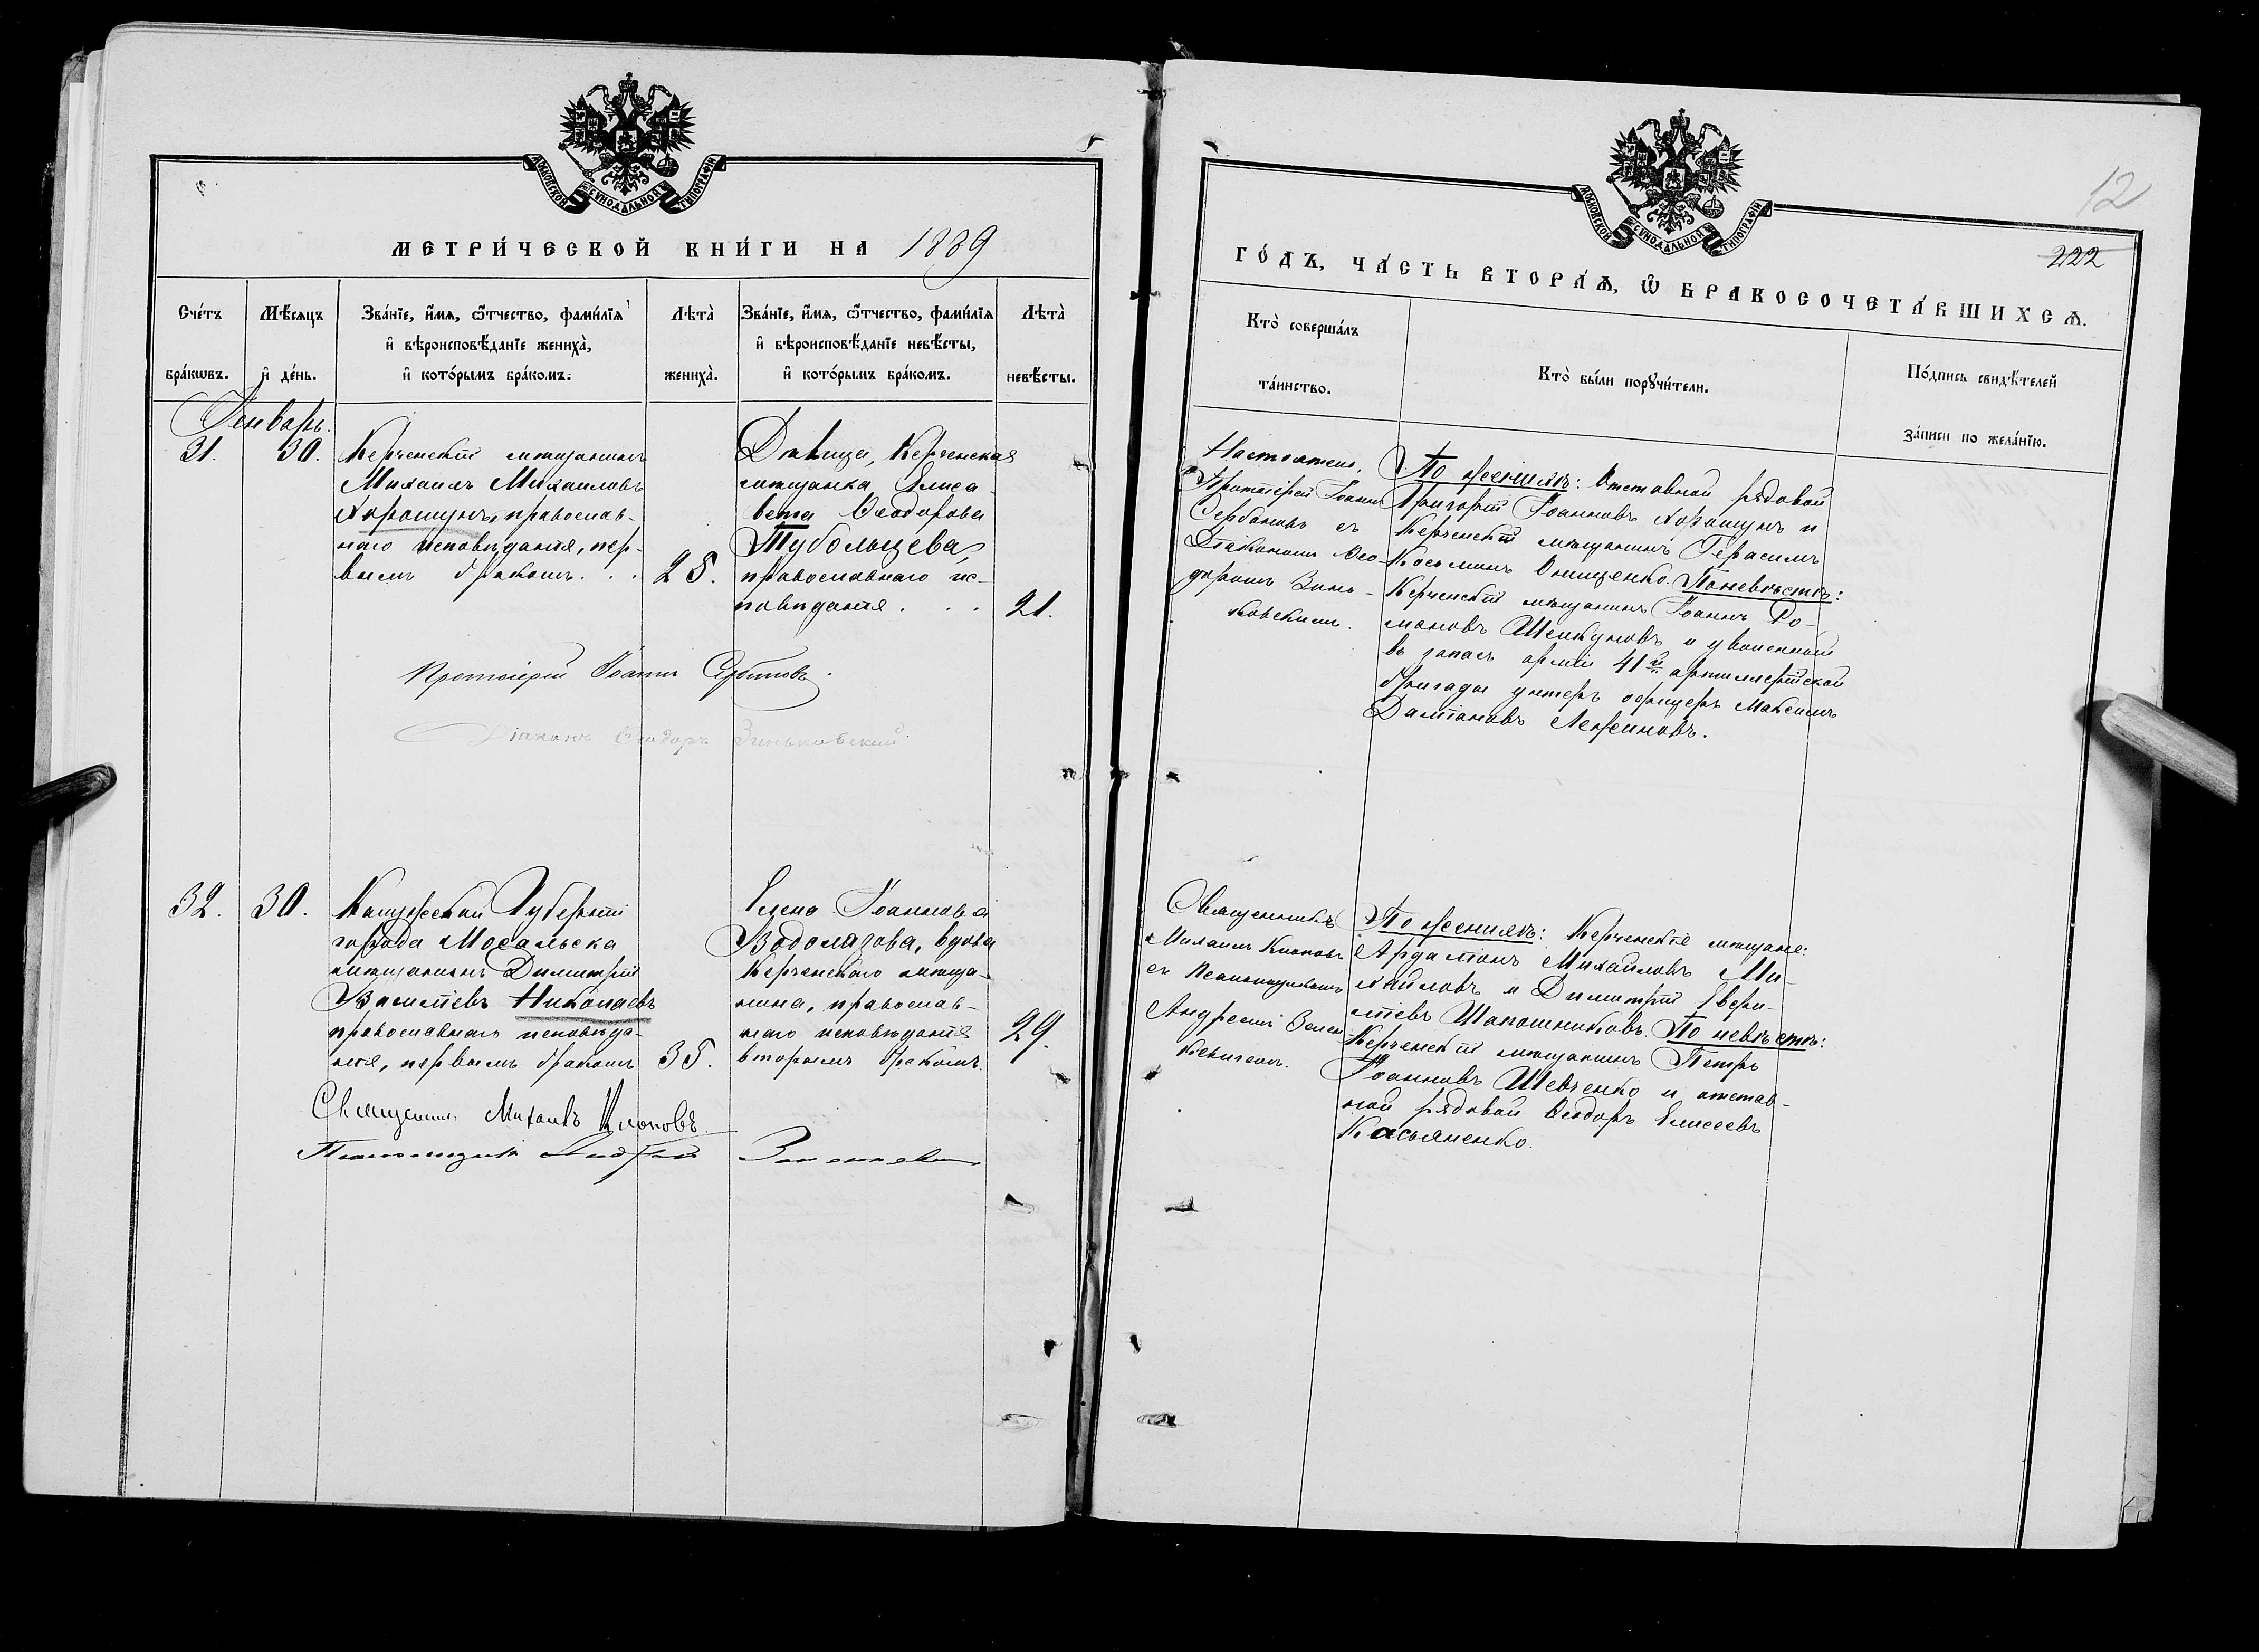 МОСКОВСКОЙ СУНОДАЛЬНОЙ ТИПОГРАФІИ
МЕТРИ́ЧЕСКОЙ КНИ́ГИ НА 1889
Сче́тъ бра́кѡвъ.
Мѣ́сяцъ и҆ де́нь.
Зва́нїе, и҆́мѧ, ѻ҆́тчество, фами́лїѧ
и҆ вѣроисповѣ́данїе жениха̀,
и҆ кото́рымъ бра́комъ.
Лѣта̀ жениха̀.
Зва́нїе, и҆́мѧ, ѻ҆́тчество, фами́лїѧ
и҆ вѣроисповѣ́данїе невѣ́сты,
и҆ кото́рымъ бра́комъ.
Лѣта̀ невѣ́сты.
Генварь.
31. 30.
Керченскій мѣщанинъ
Михаилъ Михаиловъ
Хорошунъ, православ-
наго исповѣданія, пер-
вымъ бракомъ. . .
25.
Дѣвица, Керченская
мѣщанка Елиса-
вета Ѳеодорова
Тубольцева,
православнаго ис-
повѣданія . . .
21.
Протоіерей Іоаннъ Сербиновъ.
Діаконъ Ѳеодоръ Зиньковскій
32. 30.
Калужской Губерніи
города Мосальска
мѣщанинъ Димитрій
Василіевъ Николаевъ
православнаго исповѣда-
нія, первымъ бракомъ
35.
Елена Іоаннова
Водолазова, вдова
Керченскаго мѣща-
нина, православ-
наго исповѣданія
вторымъ бракомъ.
29.
Священникъ Михаилъ Клоповъ
Псаломщикъ Андрей
12
222
МОСКОВСКОЙ СУНОДАЛЬНОЙ ТИПОГРАФІИ
ГО́ДЪ, ЧА́СТЬ ВТОРА́Ѧ, Ѽ БРАКОСОЧЕТА́ВШИХСѦ.
Кто̀ соверша́лъ
та́инство.
Кто̀ бы́ли порꙋчи́тели.
По́дпись свидѣ́телей
за́писи по жела́нїю.
Настоятель,
Протоіерей Іоаннъ
Сербиновъ съ
Діакономъ Ѳео-
доромъ Зинь-
ковскимъ.
По женихѣ: Отставной рядовой
Григорій Іоанновъ Хорошунъ и
Керченскій мѣщанинъ Герасимъ
Косьминъ Онищенко. По невѣстѣ:
Керченскій мѣщанинъ Іоаннъ Ро-
мановъ и уволенный
въ запасъ арміи 41й артиллерійской
бригады унтеръ офицеръ Максимъ
Даміановъ
Священникъ
Михаилъ Клоповъ
съ Псаломщикомъ
Андреемъ Зелен-
кевичемъ.
По женихѣ: Керченскіе мѣщане:
Ардаліонъ Михайловъ Ми-
хайловъ и Димитрій Авери-
кіевъ Шапошниковъ. По невѣстѣ:
Керченскій мѣщанинъ Петръ
Іоанновъ Шевченко и отстав-
ной рядовой Ѳеодоръ Елисеевъ
Касьяненко.